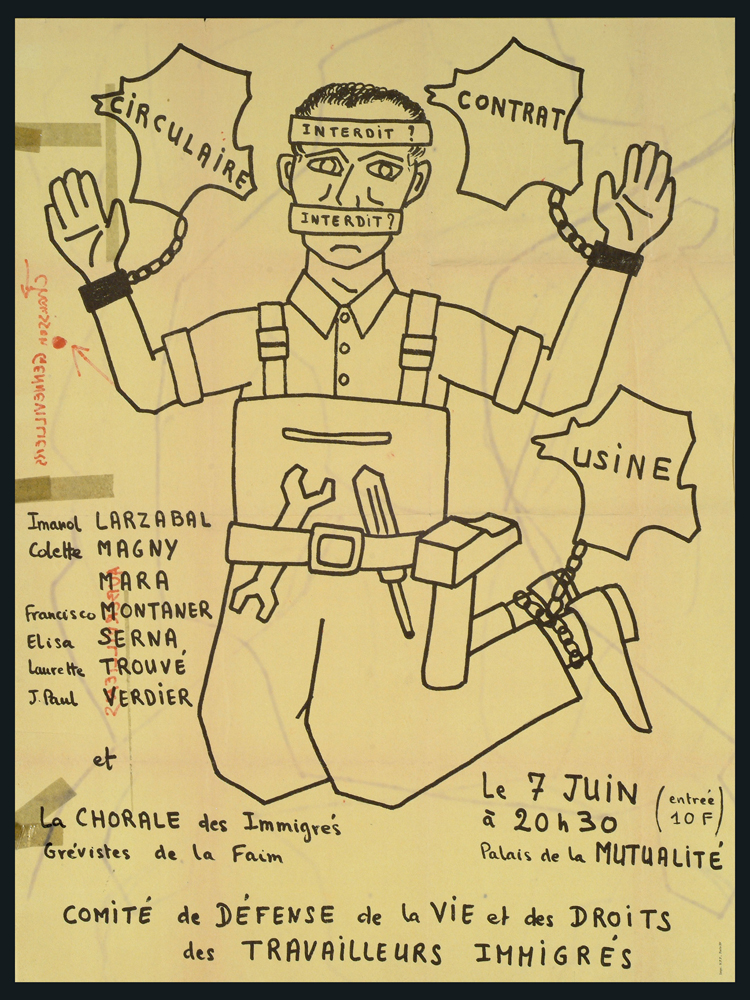 CIRCULAIRE
CONTRAT
INTERDIT ?
INTERDIT ?
USINE
Imanol LARZABAL
Colette MAGNY
MARA
Francisco MONTANER
Elisa SERNA
Laurette TROUVÉ
J. Paul VERDIER
et
La CHORALE des Immigrés
Grévistes de la Faim
Le 7 JUIN
à 20h30
(entrée
10 F)
Palais de la MUTUALITÉ
COMITÉ de DÉFENSE de la VIE et des DROITS
des TRAVAILLEURS IMMIGRÉS